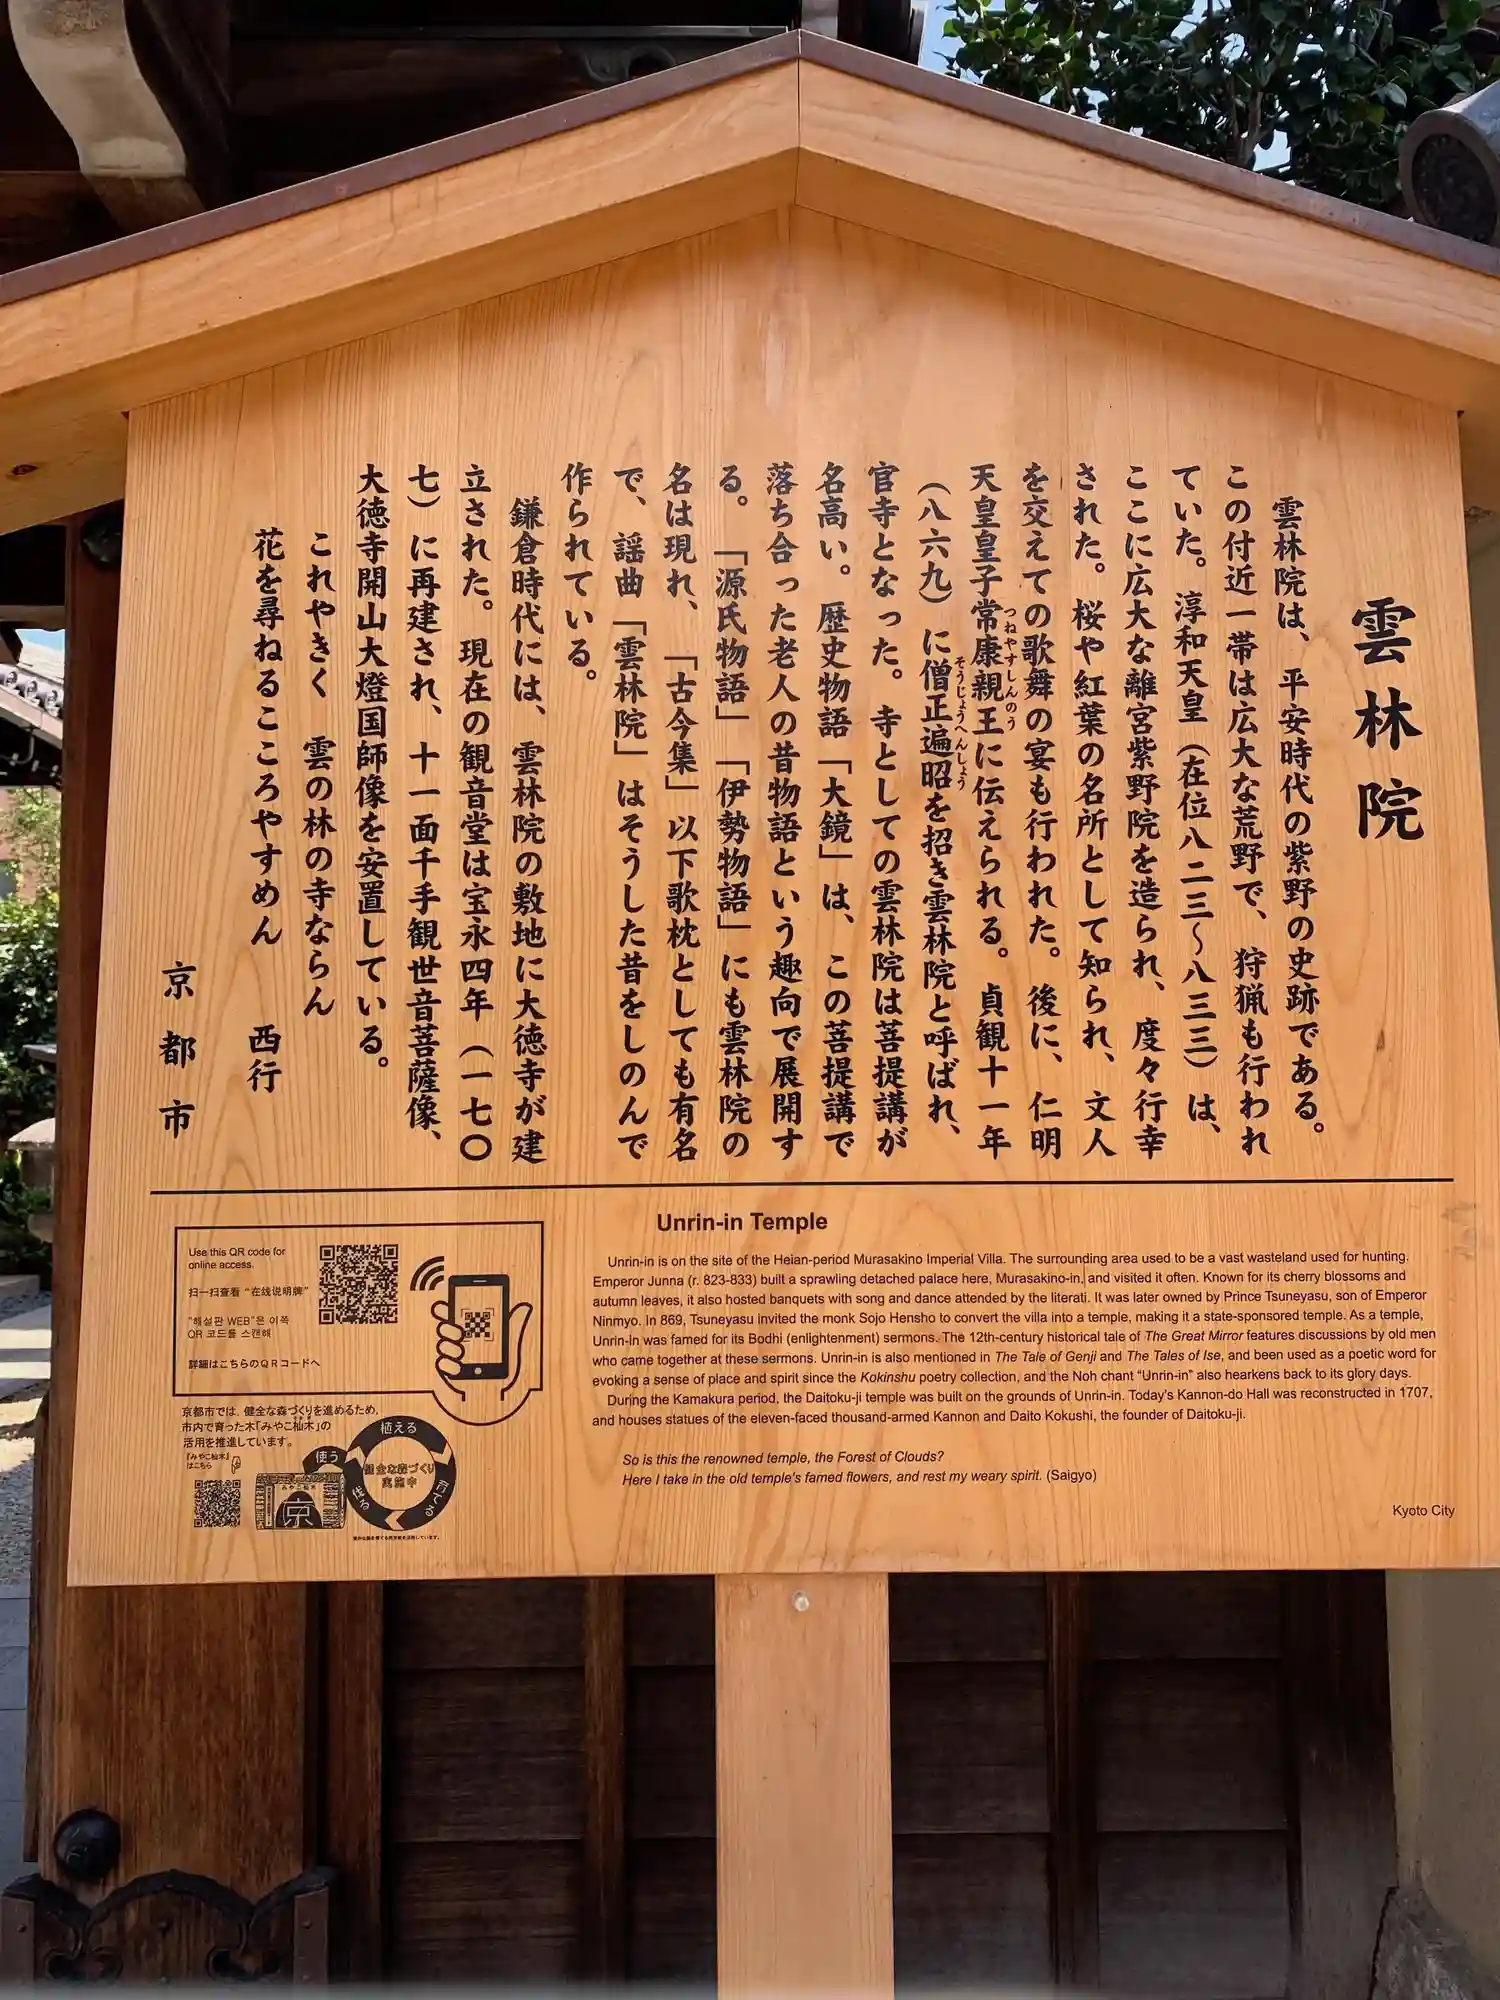 雲林院
雲林院は、平安時代の紫野の史跡である。
この付近一帯は広大な荒野で、狩猟も行われ
ていた。淳和天皇（在位八二三～八三三）は、
ここに広大な離宮紫野院を造られ、度々行幸
された。桜や紅葉の名所として知られ、文人
を交えての歌舞の宴も行われた。後に、仁明
天皇皇子常康親王に伝えられる。貞観十一年
つねやすしんのう
（八六九）に僧正遍昭を招き雲林院と呼ばれ、
そうじょうへんしょう
官寺となった。寺としての雲林院は菩提講が
名高い。歴史物語「大鏡」は、この菩提講で
落ち合った老人の昔物語という趣向で展開す
る。「源氏物語」「伊勢物語」にも雲林院の
名は現れ、「古今集」以下歌枕としても有名
で、謡曲「雲林院」はそうした昔をしのんで
作られている。
鎌倉時代には、雲林院の敷地に大徳寺が建
立された。現在の観音堂は宝永四年（一七〇
七）に再建され、十一面千手観世音菩薩像、
大徳寺開山大燈国師像を安置している。
これやきく　雲の林の寺ならん
花を尋ねるこころやすめん　西行
京都市
Use this QR code for
online access.
扫一扫查看 “在线说明牌”
"해설판 WEB"은 이쪽
QR 코드를 스캔해
詳細はこちらのQRコードへ
京都市では、健全な森づくりを進めるため、
市内で育った木「みやこ杣木」の
活用を推進しています。
『みやこ杣木』
はこちら
使う
植える
育てる
伐る
健全な森づくり
実施中
みやこ杣木
京
Unrin-in Temple
Unrin-in is on the site of the Heian-period Murasakino Imperial Villa. The surrounding area used to be a vast wasteland used for hunting.
Emperor Junna (r. 823-833) built a sprawling detached palace here, Murasakino-in, and visited it often. Known for its cherry blossoms and
autumn leaves, it also hosted banquets with song and dance attended by the literati. It was later owned by Prince Tsuneyasu, son of Emperor
Ninmyo. In 869, Tsuneyasu invited the monk Sojo Hensho to convert the villa into a temple, making it a state-sponsored temple. As a temple,
Unrin-in was famed for its Bodhi (enlightenment) sermons. The 12th-century historical tale of The Great Mirror features discussions by old men
who came together at these sermons. Unrin-in is also mentioned in The Tale of Genji and The Tales of Ise, and been used as a poetic word for
evoking a sense of place and spirit since the Kokinshu poetry collection, and the Noh chant “Unrin-in” also hearkens back to its glory days.
During the Kamakura period, the Daitoku-ji temple was built on the grounds of Unrin-in. Today's Kannon-do Hall was reconstructed in 1707,
and houses statues of the eleven-faced thousand-armed Kannon and Daito Kokushi, the founder of Daitoku-ji.
So is this the renowned temple, the Forest of Clouds?
Here I take in the old temple's famed flowers, and rest my weary spirit. (Saigyo)
Kyoto City